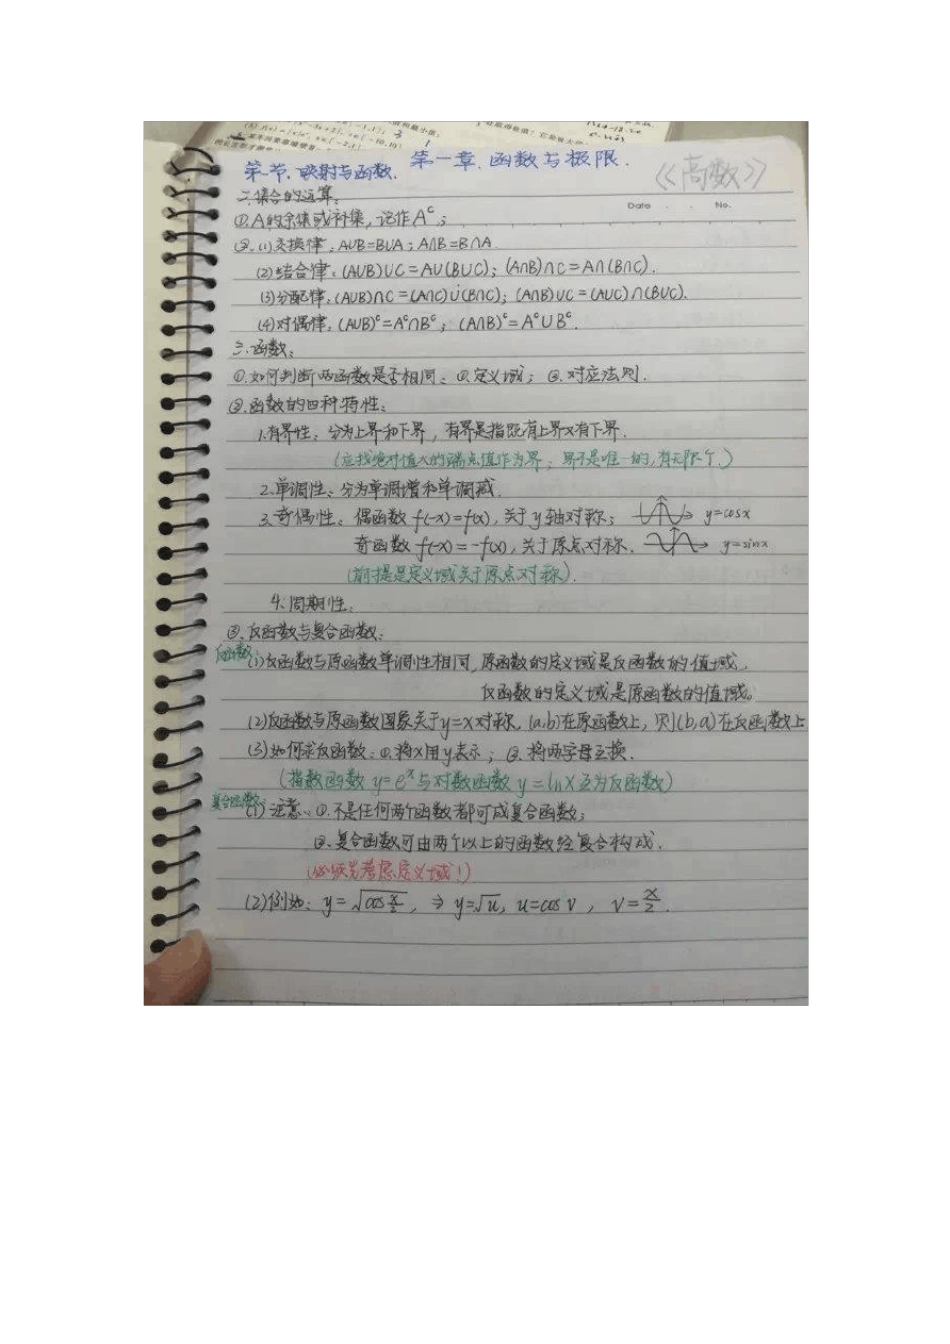 第一章.函数与极限.
《高数》
第一节.映射与函数.
Date . . No.
二.集合的运算:
①.A的余集或补集,记作Aᶜ;
②.(1)交换律:A∪B=B∪A;A∩B=B∩A.
(2)结合律:(A∪B)∪C=A∪(B∪C);(A∩B)∩C=A∩(B∩C).
(3)分配律:(A∪B)∩C=(A∩C)∪(B∩C);(A∩B)∪C=(A∪C)∩(B∪C).
(4)对偶律:(A∪B)ᶜ=Aᶜ∩Bᶜ;(A∩B)ᶜ=Aᶜ∪Bᶜ.
三.函数:
①.如何判断两函数是否相同:①.定义域;②.对应法则.
②.函数的四种特性:
1.有界性:分为上界和下界,有界是指既有上界又有下界.
(应找绝对值大的端点值作为界,界不是唯一的,有无限个.)
2.单调性:分为单调增和单调减.
3.奇偶性:偶函数f(-x)=f(x),关于y轴对称; y=cosx
奇函数f(-x)=-f(x),关于原点对称. y=sinx
(前提是定义域关于原点对称).
4.周期性:
③.反函数与复合函数:
反函数:(1)反函数与原函数单调性相同,原函数的定义域是反函数的值域,
反函数的定义域是原函数的值域。
(2)反函数与原函数图象关于y=x对称.(a,b)在原函数上,则(b,a)在反函数上
(3)如何求反函数:①.将x用y表示;②.将两字母互换.
(指数函数 y=eˣ与对数函数 y=lnx互为反函数)
复合函数:(1)注意:①.不是任何两个函数都可成复合函数;
②.复合函数可由两个以上的函数经复合构成.
(必须先考虑定义域!)
(2)例如:y=√(cos x/2), ⇒ y=√u, u=cos v, v=x/2.